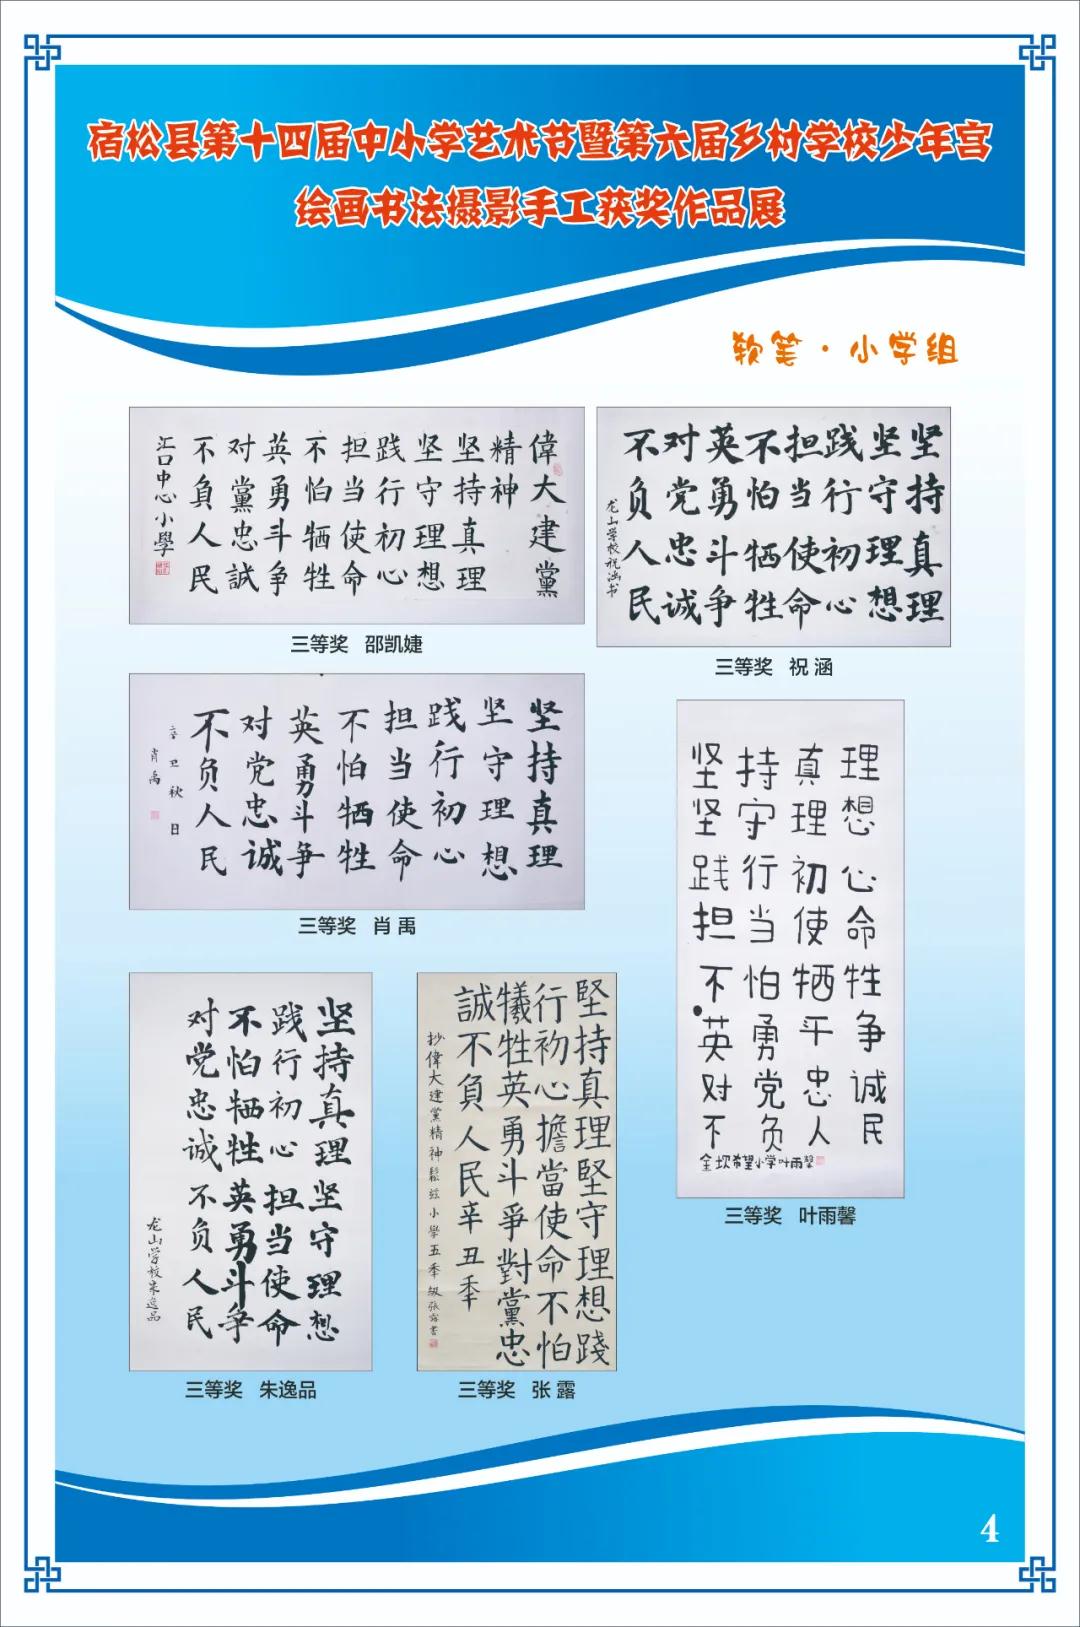 宿松县第十四届中小学艺术节暨第六届乡村学校少年宫
绘画书法摄影手工获奖作品展
软笔·小学组
偉大建黨
精神
坚持真理
坚守理想
践行初心
担当使命
不怕牺牲
英勇斗争
对黨忠誠
不負人民
汇口中心小學
三等奖 邵凯婕
坚持真理
坚守理想
践行初心
担当使命
不怕牺牲
英勇斗争
对党忠诚
不负人民
龙山学校祝涵书
三等奖 祝涵
坚持真理
坚守理想
践行初心
担当使命
不怕牺牲
英勇斗争
对党忠诚
不负人民
辛丑秋日
肖禹
三等奖 肖禹
坚持真理
坚守理想
践行初心
担当使命
不怕牺牲
英勇斗争
对党忠诚
不负人民
金坝希望小学叶雨馨
三等奖 叶雨馨
坚持真理坚守理想
践行初心担当使命
不怕牺牲英勇斗争
对党忠诚不负人民
龙山学校朱逸品
三等奖 朱逸品
堅持真理堅守理想踐
行初心擔當使命不怕
犧牲英勇斗爭對黨忠
誠不負人民辛丑秊
抄偉大建黨精神鬆兹小學五秊级张露書
三等奖 张露
4